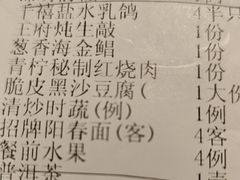 千禧盐水乳鸽 4半只
王府炖生敲 1份
葱香海金鲳 1份
青柠秘制红烧肉 1份
脆皮黑沙豆腐( 1大份
清炒时蔬(例) 1例
招牌阳春面(客) 4客
餐前水果 4例
普洱茶 1壶